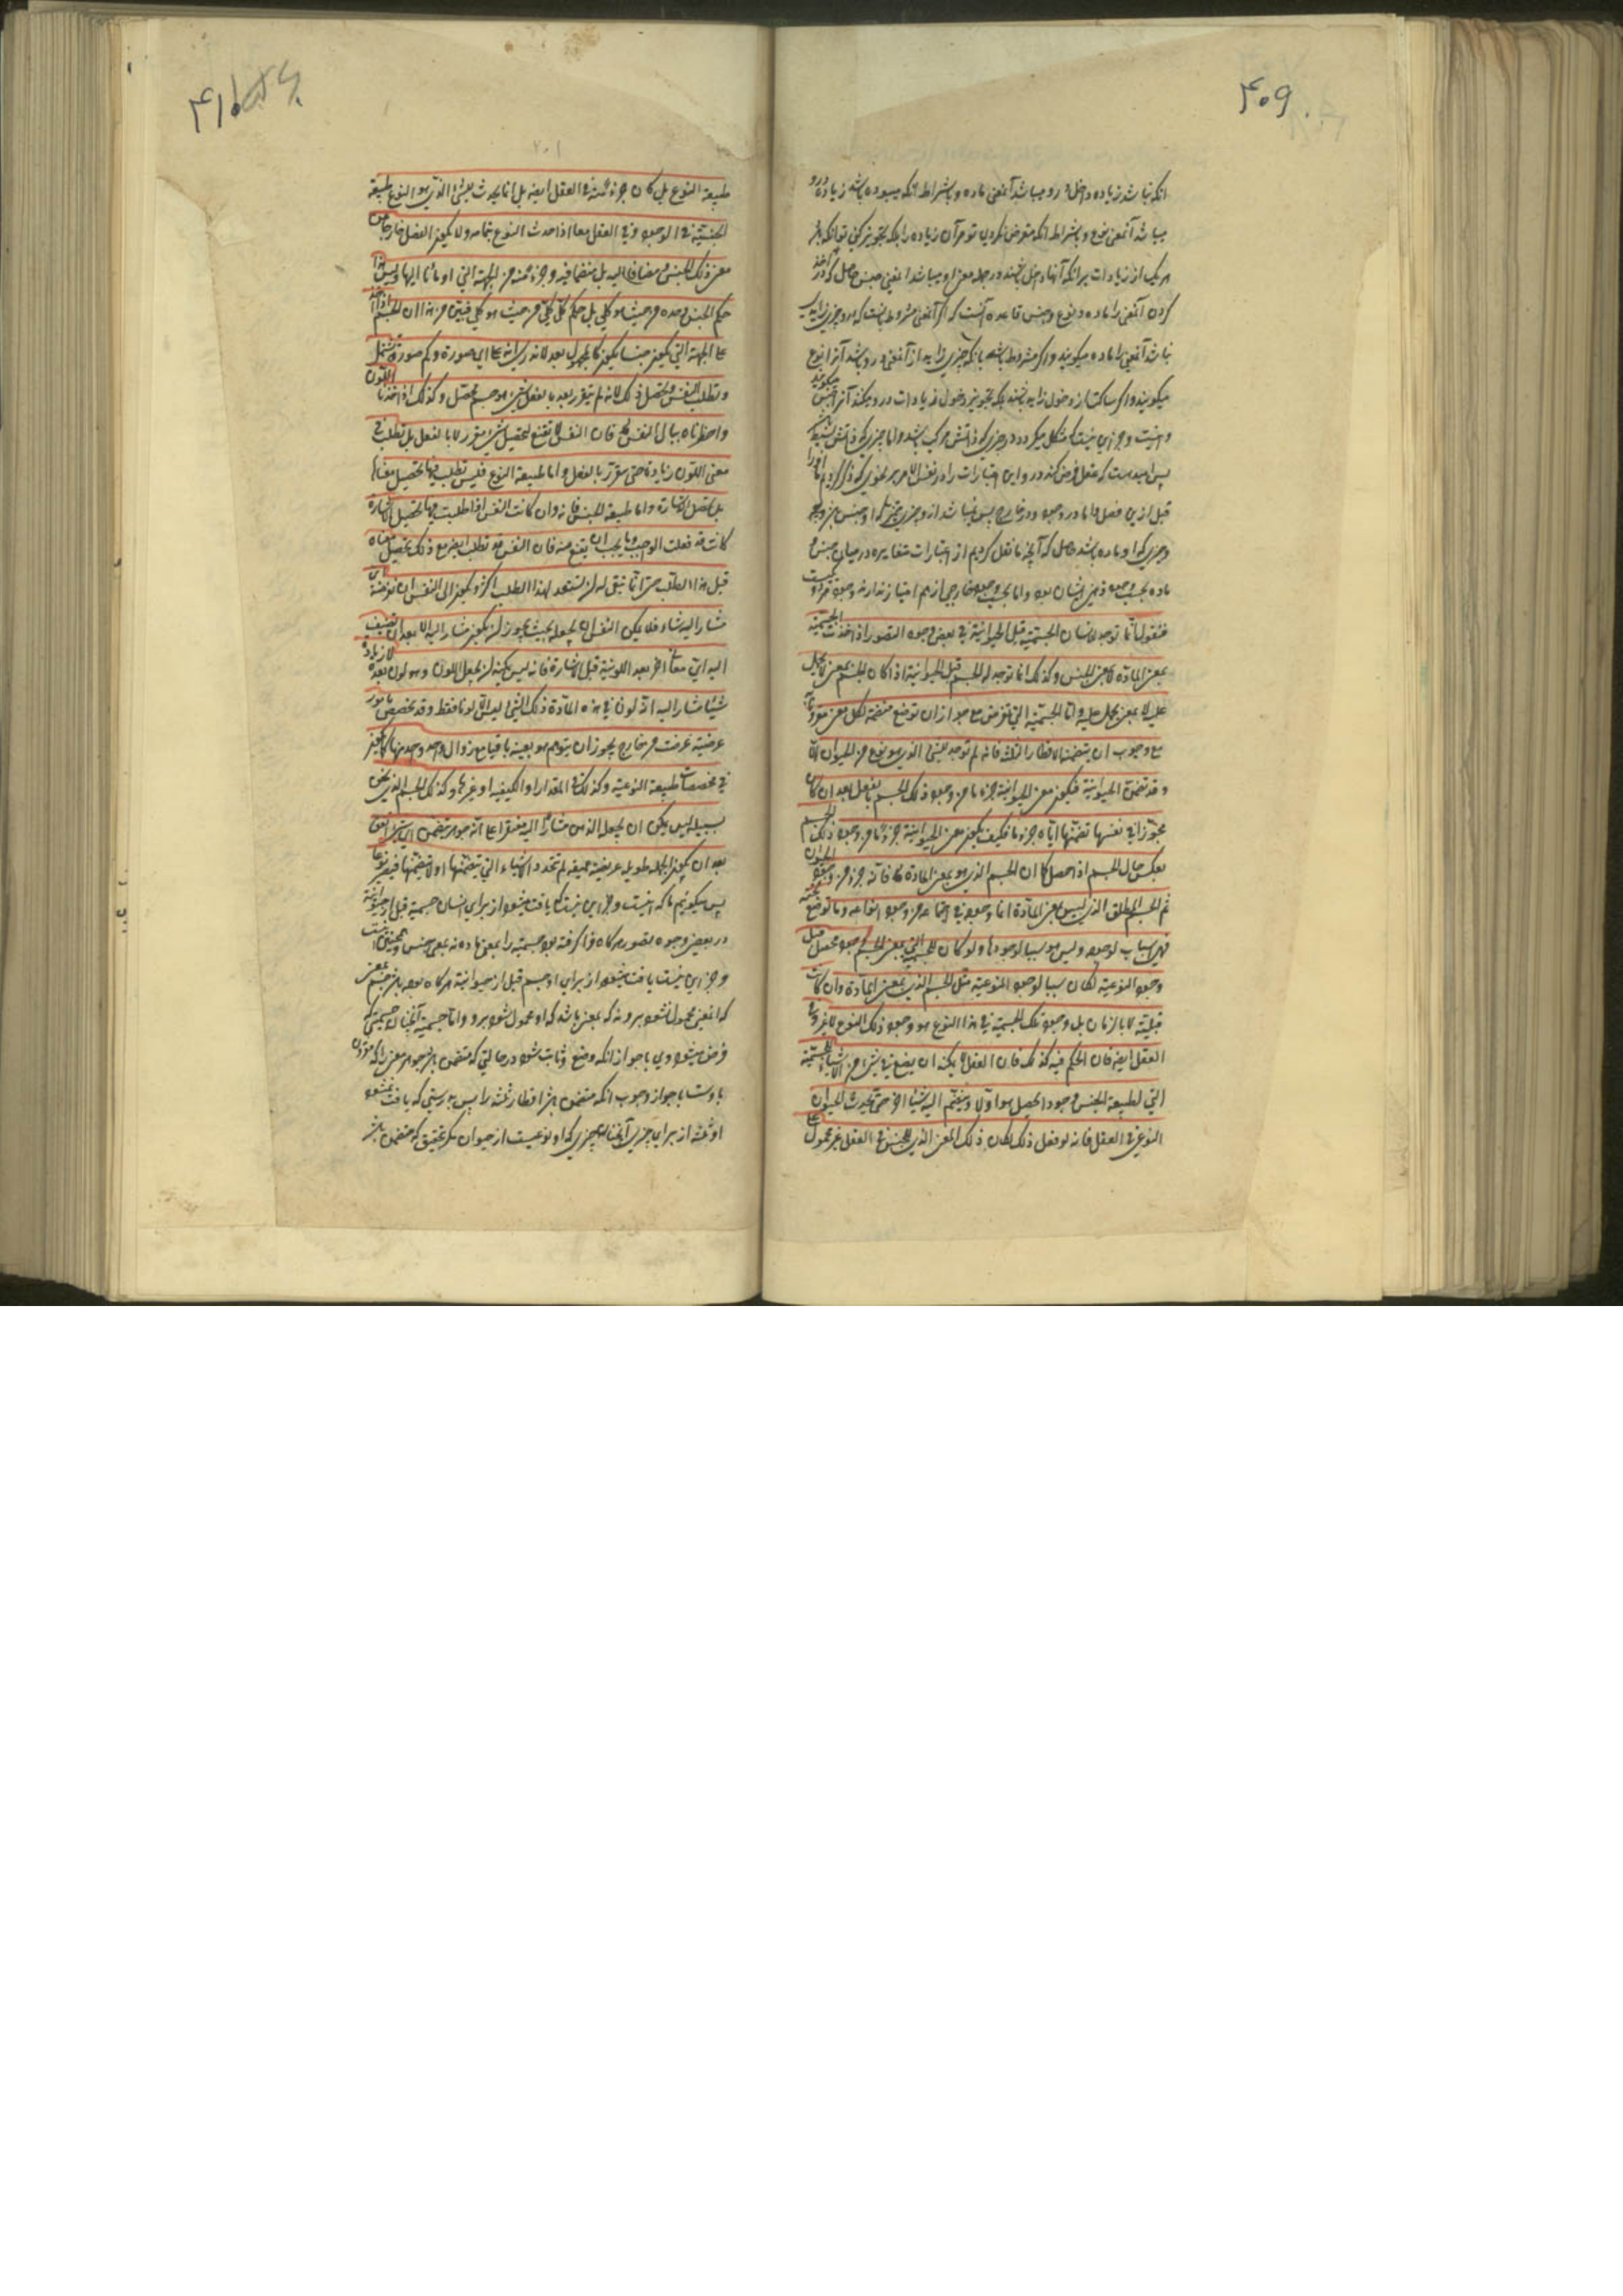 ۴۰۹
انکه نباشد زیاده داخل در و میباشد آنمعنی ماده و بشرط انکه میبوده باشد زیاده درو
میباشد آنمعنی نوع و بشرط انکه متعرض نکردی تو مر آن زیاده را بلکه تجویز کنی تو انکه
هر یک از زیادات بر انکه آنها داخل باشند در جمله معنی او میباشد انمعنی جنس حاصل که در اخذ
کردن آنمعنی را ماده و نوع و جنس قاعده آنست که اگر آنمعنی مشروط بانست که در و چیزی زاید
نباشد آنمعنی را ماده میکویند و اگر مشروط باشد بانکه چیزی زاید از آنمعنی در و باشد آنرا نوع
میکویند و اگر ساکت از دخول زاید باشند بلکه تجویز دخول زیادات در و میکند آنرا جنس میکویند
و اینست و جز این نیست که مشکل میکردد در چیزی که ذاتش مرکب باشد و اما چیزی که ذاتش بسیط
پس امید هست که عقل فرض کند در و این اعتبارات را در نفس الامر بر نحوی که ذکر کردیم ما او را
قبل ازین فصل و اما در وجود و در خارج پس نمیباشد از و چیزی متمیز که او جنس باشد
و چیزی که او ماده باشد حاصل که آنچه ما نقل کردیم از اعتبارات متغایره در میان جنس و
ماده بحسب وجود ذهنی ایشان بود و اما بحسب وجود خارجی از هم امتیاز ندارند
فنقول انما توجد للانسان الجسمیة قبل الحیوانیة فی بعض وجوه التصور اذا اخذت الجسمیة
بمعنی المادة لا بمعنی الجنس و کذلک انما توجد له الجسم قبل الحیوانیة اذا کان الجسم بمعنی لا یحمل
علیه لا بمعنی یحمل علیه و اما الجسمیة التی تفرض مع جواز ان توضع متضمنة لکل معنی مقرونا
مع وجوب ان یتضمن الاقطار الثلثة فانها لم توجد للشیء الذی هو نوع من الحیوان الا
و قد تضمن الحیوانیة فیکون معنی الحیوانیة جزءا ما من وجود ذلک الجسم بالفعل بعد ان کان
مجوزا فی نفسها تضمنها ایاه جزءا ما فکیف یکون معنی الحیوانیة جزءا ما من وجود ذلک الجسم
بعکس حال الجسم اذا حصل کما ان الجسم الذی هو بمعنی المادة فانه جزء من وجود الحیوان
ثم الجسم المطلق الذی لیس بمعنی المادة انما وجوده فی اجتماعه من وجود انواعه و ما توضع تحته
فهی اسباب لوجوده و لیس هو سببا لوجودها و لو کان للجسمیة التی بمعنی الجنس وجود محصل قبل
وجود النوعیة لکان سببا لوجود النوعیة مثل الجسم الذی بمعنی المادة و ان کانت
قبلیته لا بالزمان بل وجود تلک الجسمیة فی هذا النوع هو وجود ذلک النوع لا غیر و فی
العقل ایضا فان الحکم فیه کذلک فان العقل لا یمکنه ان یضع فی شیء من الاشیاء للجسمیة
التی لطبیعة الجنس وجودا یحصل هو اولا و ینضم الیه شیئا آخر حتی یحدث الحیوان
النوعی فی العقل فانه لو فعل ذلک لکان ذلک المعنی الذی للجنس فی العقل غیر محمول علی
۴۱۰
۲۰۱
طبیعة النوع بل کان جزءا منه فی العقل ایضا بل انما یحدث للشیء الذی هو النوع طبیعة
الجنسیة فی الوجود و فی العقل معا اذا احدث النوع بتمامه و لا یکون الفصل خارجا من
معنی ذلک الجنس و مضافا الیه بل متضمنا فیه و جزءا منه من الجهة التی اومأنا الیها و لیس هذا
حکم الجنس وحده من حیث هو کلی بل حکم کل کلی من حیث هو کلی فبین من هذا ان الجسم اذا اخذ
علی الجهة التی یکون جنسا یکون کالمجهول بعد لانه لا یدری انه علی ای صورة و کم صورة یشتمل
و تطلب النفس تحصیل ذلک لانه لم یتقرر بعد بالفعل شیء هو جسم محصل و کذلک اذا اخذنا اللون
و اخطرناه ببال النفس فان النفس لا تقنع بتحصیل شیء متقرر لا بالفعل بل تطلب فی
معنی اللون زیادة حتی یتقرر بالفعل و اما طبیعة النوع فلیس تطلب فیها تحصیل معناها
بل تحصیل الاشارة و اما طبیعة الجنس فانه و ان کانت النفس اذا طلبت فیها تحصیل الاشارة
کانت قد فعلت الواجب و ما یجب ان یقنع منه فان النفس قد تطلب ایضا مع ذلک تحصیل معناه
قبل هذا الطلب حتی انما تبقی له ان تستعد لهذا الطلب اکثر و یکون الی النفس ان تفرضه ای
مشار الیه شاء فلا یمکن النفس ان تجعله بحیث یجوز ان یکون مشارا الیه الا بعد ان تضیف
الیه ای معان اخر بعد اللونیة قبل الاشارة فانه لیس یمکنه ان یجعل اللون و هو لون بعد بلا زیادة
شیئا مشارا الیه انه لون فی هذه المادة ذلک الشیء لیس الا لونا فقط و قد یخصص بامور
عرضیة عرضت من خارج یجوز ان یتوهم هو بعینه باقیا مع زوال واحد واحد منها کما یکون
فی مخصصات طبیعة النوعیة و کذلک فی المقدار او الکیفیة او غیرهما و کذلک الجسم الذی نحن
بسبیله لیس یمکن ان یجعله الذهن مشارا الیه مقتصرا علی انه جوهر یتضمن ای شیء اتفق
بعد ان یکون الجملة طویلة عریضة عمیقة لم تتحدد الاشیاء التی یتضمنها او لا یتضمنها فیصیر نوعا
پس میکوئیم ما که اینست و جز این نیست که یافت میشود از برای انسان جسمیة قبل از حیوانیة
در بعضی وجوه تصور هرکاه فراکرفته بود جسمیة را بمعنی ماده نه بمعنی جنس و همچنین اینست
و جز این نیست یافت میشود از برای او جسم قبل از حیوانیة هرکاه بوده باشد جسم بمعنی
که انمعنی محمول نشود برو نه که بمعنی باشد که او محمول شود برو و اما جسمیة آنچنان جسمیتی که
فرض میشود وی با جواز انکه وضع و ثابت شود در حالتی که متضمن باشد هر معنی را که مقرون
باوست با جواز وجوب انکه متضمن باشد اقطار ثلثه را پس بدرستی که یافت نمیشود
او ثلثه از برای چیزی آنچنان چیزی که او نوعیست از حیوان مکر بتحقیق که متضمن باشد